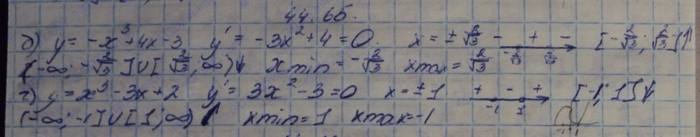 44.65.
д) y = -x³+4x-3 y' = -3x²+4=0. x = ± 2/√3 - + - -2/√3 2/√3 [-2/√3; 2/√3]↑
(-∞; -2/√3]∪[2/√3; ∞)↓ xmin = -2/√3 xmax = 2/√3
г) y = x³-3x+2 y' = 3x²-3=0 x = ±1 + - + -1 1 [-1; 1]↓
(-∞; -1]∪[1; ∞)↑ xmin = 1 xmax = -1